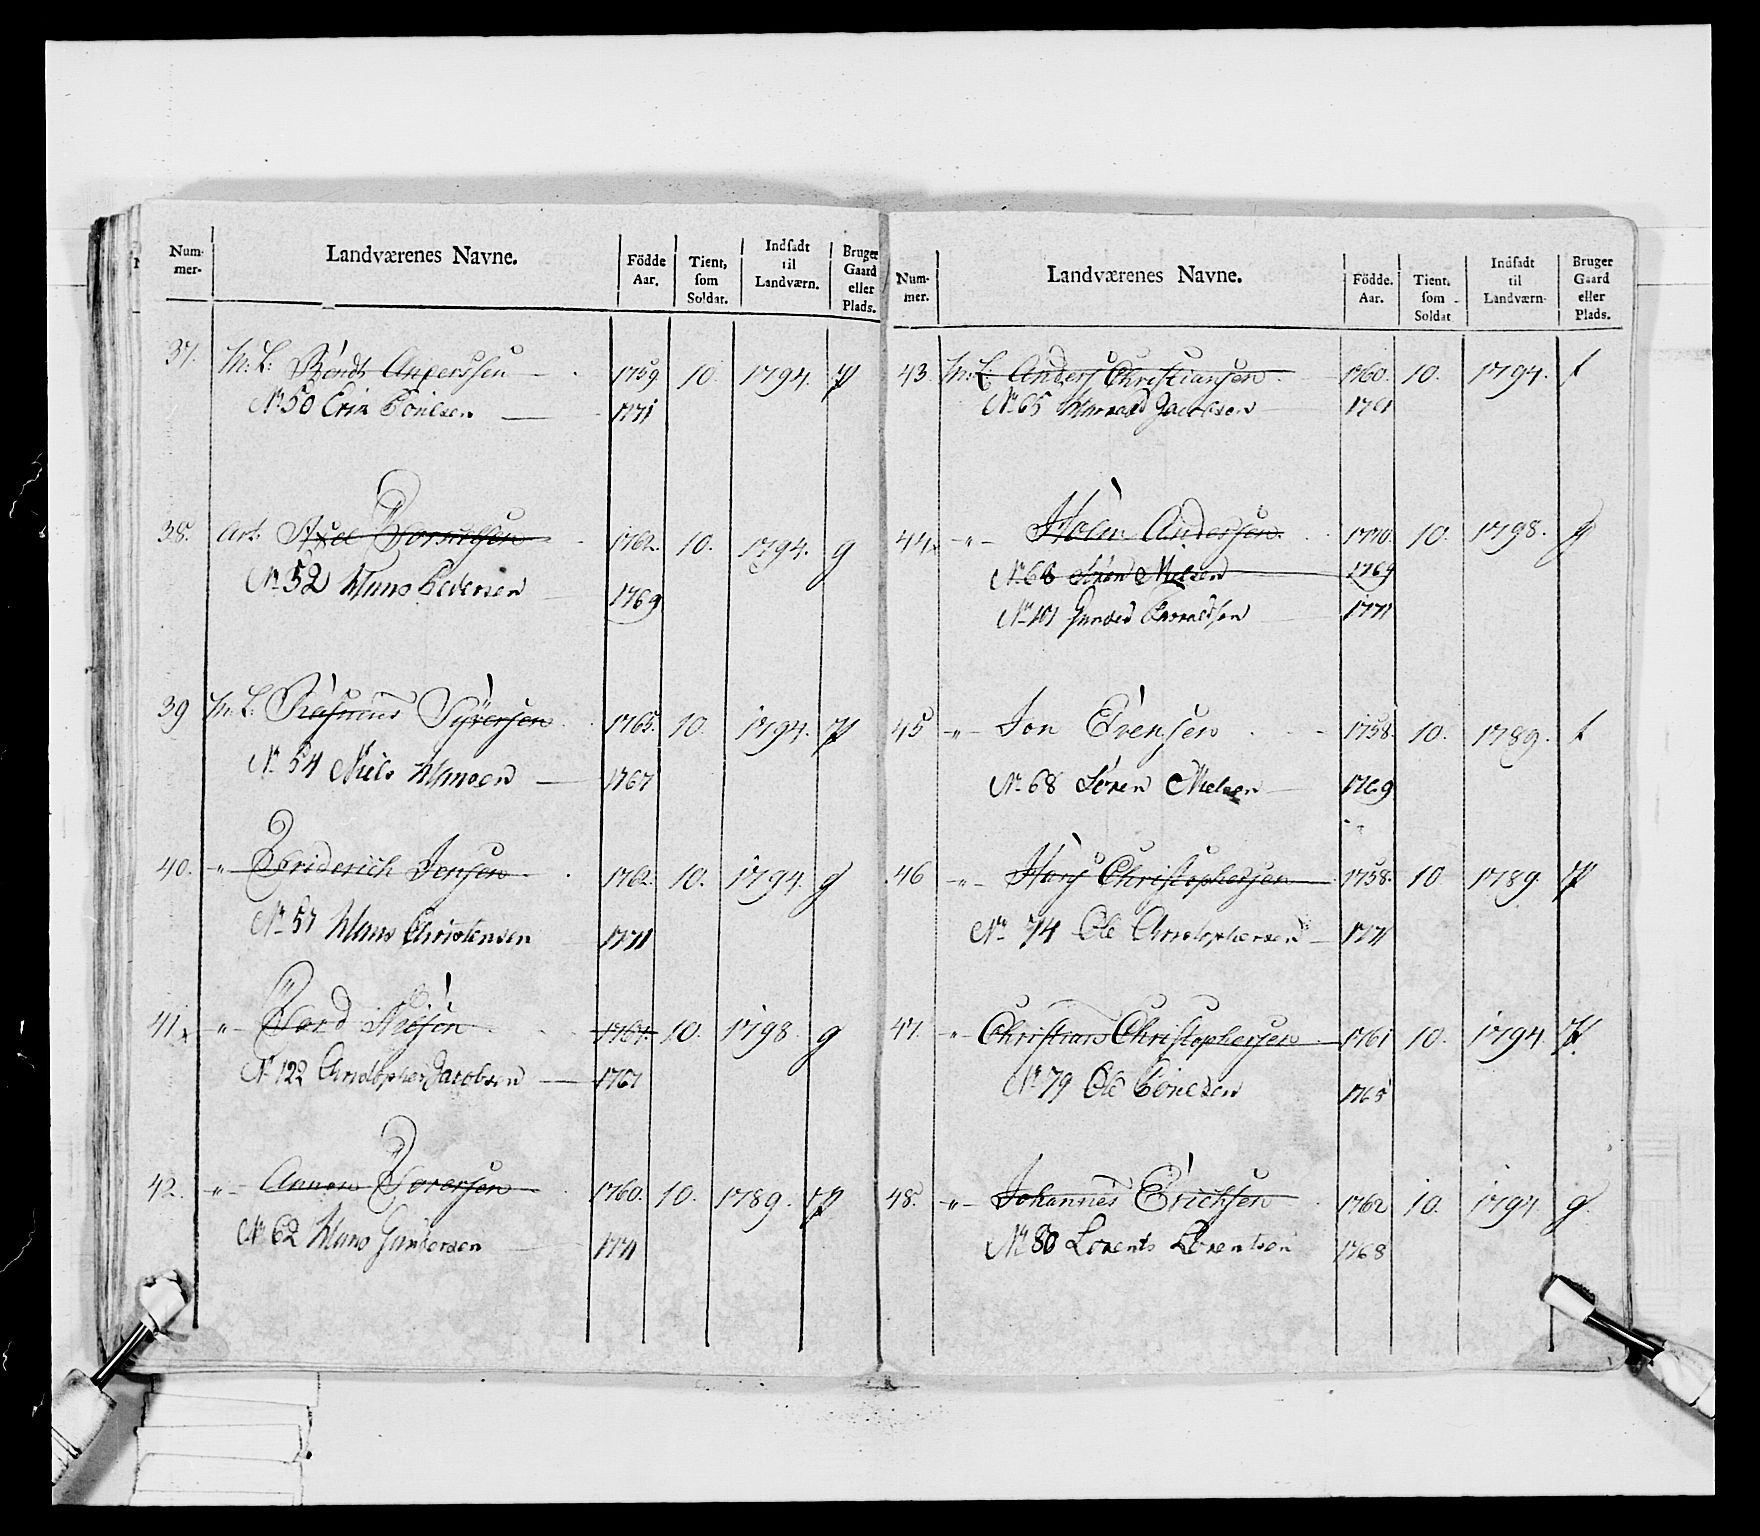 Num-
mer-
Landværenes Navne.
Födde
Aar.
Tient,
som
Soldat.
Indsadt
til
Landværn.
Bruger
Gaard
eller
Plads.
37. Anderssen 1759. 10. 1794. p
No 50 Erik Poulsen 1771
38. Art. Axel 1762. 10. 1794. g
No 52 Hans Pedersen 1769
39 Rasmus Syversen 1765. 10. 1794. p
No 54 Niels Hansen 1767
40. " Friderich Jensen 1762. 10. 1794. g
No 57 Hans Christensen 1771
41. " 1761. 10. 1798. g
No 122 Christopher Jacobsen 1767
42. " 1760. 10. 1789. p
No 62 Hans Gundersen 1771
Num-
mer.
Landværenes Navne.
Födde.
Aar.
Tient.
som
Soldat
Indsadt
til
Landværn.
Bruger
Gaard
eller
Plads.
43. Anders Christiansen 1760. 10. 1794. f
No 65 Jacobsen 1761
44. " Andersen 1770. 10. 1798. g
No 68 Sören Nielsen 1769
No 101 1771
45 " Jon Evensen 1758. 10. 1789. f
No 68 Sören Nielsen 1769
46 " Hans Christophersen 1758. 10 1789. p
No 74 Ole Christophersen 1771
47. " Christian Christophersen 1761 10. 1794. p
No 79 Ole Poulsen 1765
48. " Johannes Erichsen 1762 10. 1794. g
No 80 Lorents Lorentsen 1768